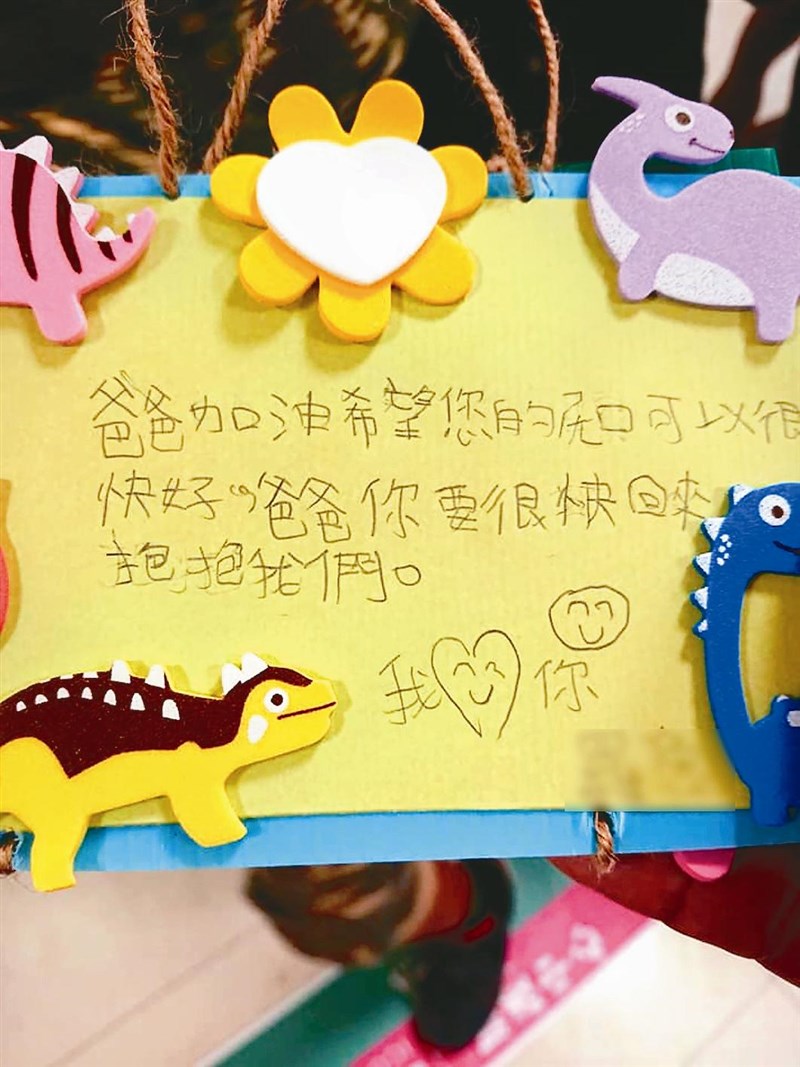 爸爸加油希望您的口可以很
快好"爸爸你要很快回來
抱抱我們。
我你